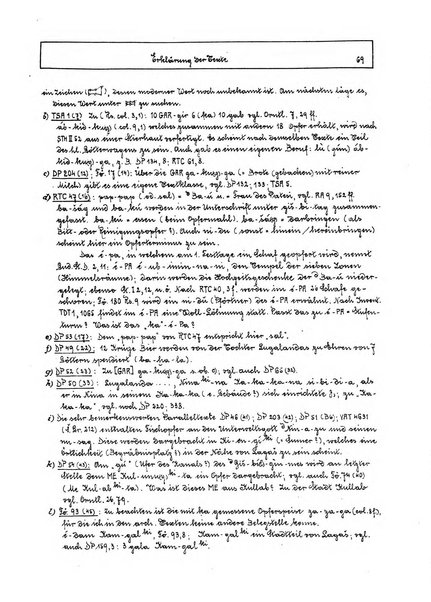 Erklärung der Texte 69
ein Zeichen ( ), denen moderner Wert noch unbekannt ist. Am nächsten läge es,
diesen Wert unter KET zu suchen.
b) TSA 1 (7) : Zu (Rs. col. 3, 1): 10 GAR-gír 6 (ka) 10 gab vgl. Orntl. 7, 29 ff.
áb-kid-kug (col. 9, 1) welches zusammen mit andern 18 Opfer erhält, wird nach
STH II 52 aus einer Tierhaut verfertigt. Es scheint nach demselben Texte ein Teil
des hl. Götterwagens zu sein. Auch gab es einen eigenen Beruf: lù (gim) áb-
kid-kug-ga, z. B. DP 134, 8; RTC 61, 8.
c) DP 204 (12) : Fö. 17 (11): Über die GAR ga-kug-ga (= Brote (gebacken) mit reiner
Milch) gibt es eine eigene Textklasse, vgl. DP 132-133. TSA 5.
d) RTC 47 (16) : pap-pap (od. -sal) = dBa-ú u = Frau des Patesi, vgl. RA 9, 152 ff.
ba-šág und ba-kú werden in der Unterschrift unter giš-bi-tag zusammen-
gefasst. ba-kú = essen (beim Opfermahl). ba- = Darbringen (als
Bitt- oder Reinigungsopfer?). Auch ni-du (sonst = hinein/hereinbringen)
scheint hier ein Opferterminus zu sein.
Das é-pa, in welchem am 1. Festtage ein Schaf geopfert wird, nennt
Gud. St. D. 2, 11: é-PA é-ub-imin-na-ni, den Tempel der sieben Zonen
(Himmelsräume); darin werden die Hochzeitsgeschenke der dBa-ú nieder-
gelegt; ebenso St. I, 2, 12 u. ö. Nach RTC 40, 3 f. werden im é-PA 26 Schafe ge-
schoren; Fö. 180 Rs. 9 wird ein ni-du (Pförtner) des é-PA erwähnt. Nach Invent.
TDT 1, 1065 findet im é-PA eine Woll-Löhnung statt. Passt das zu é-PA = Stufen-
turm? Was ist das „ka“ é-Pa?
e) DP 53 (17): Dem „pap-pap“ von RTC 47 entspricht hier „sal“.
f) DP 49 (22) : 12 Krüge Bier werden von der Tochter Lugalandas zu Ehren von 7
Göttern spendiert (ba-ha-la).
g) DP 52 (23) : Zu [GAR] ga-kug-ga s. ob. c); vgl. auch DP 66 (25).
h) DP 50 (33) : Lugalanda ..... Nina ki-na Ka-ka-na-na si-bi-di-a, als
er in Nina in seinem Ka-ka-ka (s. Gebäude?) sich einrichtete; zu „Ka-
ka-ka“ vgl. noch DP 220; 338.
i) Die sehr bemerkenswerten Paralleltexte DP 46 (41) ; DP 203 (42) ; DP 51 (34) ; VAT 4631
(Fö. 212) enthalten Fischopfer an den Unterweltsgott dNin-a-zu und seinen
nu-sag. Diese werden dargebracht in Ki-en-gi ki (= Sumer?), welches eine
Örtlichkeit (Begräbnisplatz?) in der Nähe von Lagaš zu sein scheint.
k) DP 54 (43) : Am „gú“ (Ufer des Kanals?) des dGiš-bil-gin-mes wird an letzter
Stelle dem ME Kul-unug ki-ta ein Opfer dargebracht, vgl. auch Fö. 74 (40)
(Me Kul-ab ki-ta). Was ist dieses ME aus Kullab? Zu der Stadt Kullab
vgl. Orntl. 26, 79.
l) Fö. 93 (45) : Zu beachten ist die mit ku genommene Opferspeise ga-za-ga (col. 5 f.),
für die ich in den arch. Texten keine andere Belegstelle kenne.
é-dam Kam-gal ki, Fö. 93, 8; Kam-gal ki ein Stadtteil von Lagaš; vgl.
auch DP 159, 3; 3 gala Kam-gal ki.